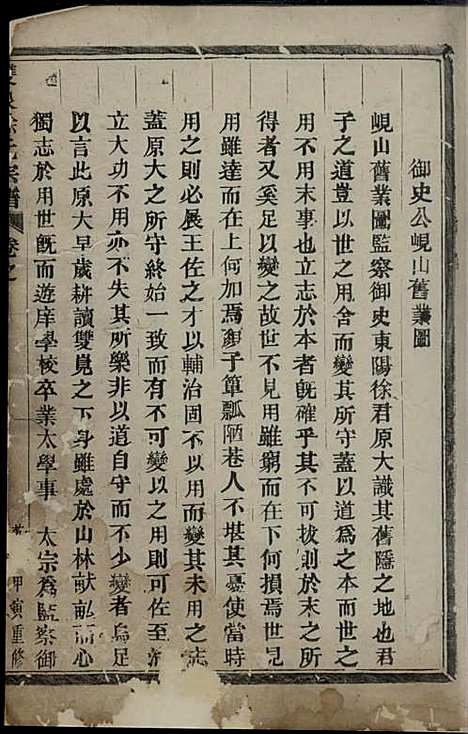 御史公峴山舊業圖
峴山舊業圖監察御史東陽徐君原大識其舊隱之地也君
子之道豈以世之用舍而變其所守蓋以道為之本而世之
用不用末事也立志於本者旣確乎其不可拔則於末之所
得者又奚足以變之故世不見用雖窮而在下何損焉世見
用雖達而在上何加焉顏子簞瓢陋巷人不堪其憂使當時
用之則必展王佐之才以輔治固不以用而變其未用之志
蓋原大之所守終始一致而有不可變以之用則可佐至治
立大功不用亦不失其所樂非以道自守而不少變者烏足
以言此原大早歲耕讀雙峴之下身雖處於山林献畝而心
獨志於用世旣而遊庠學校卒業太學事 太宗為監察御
宗譜 卷之
甲寅重修